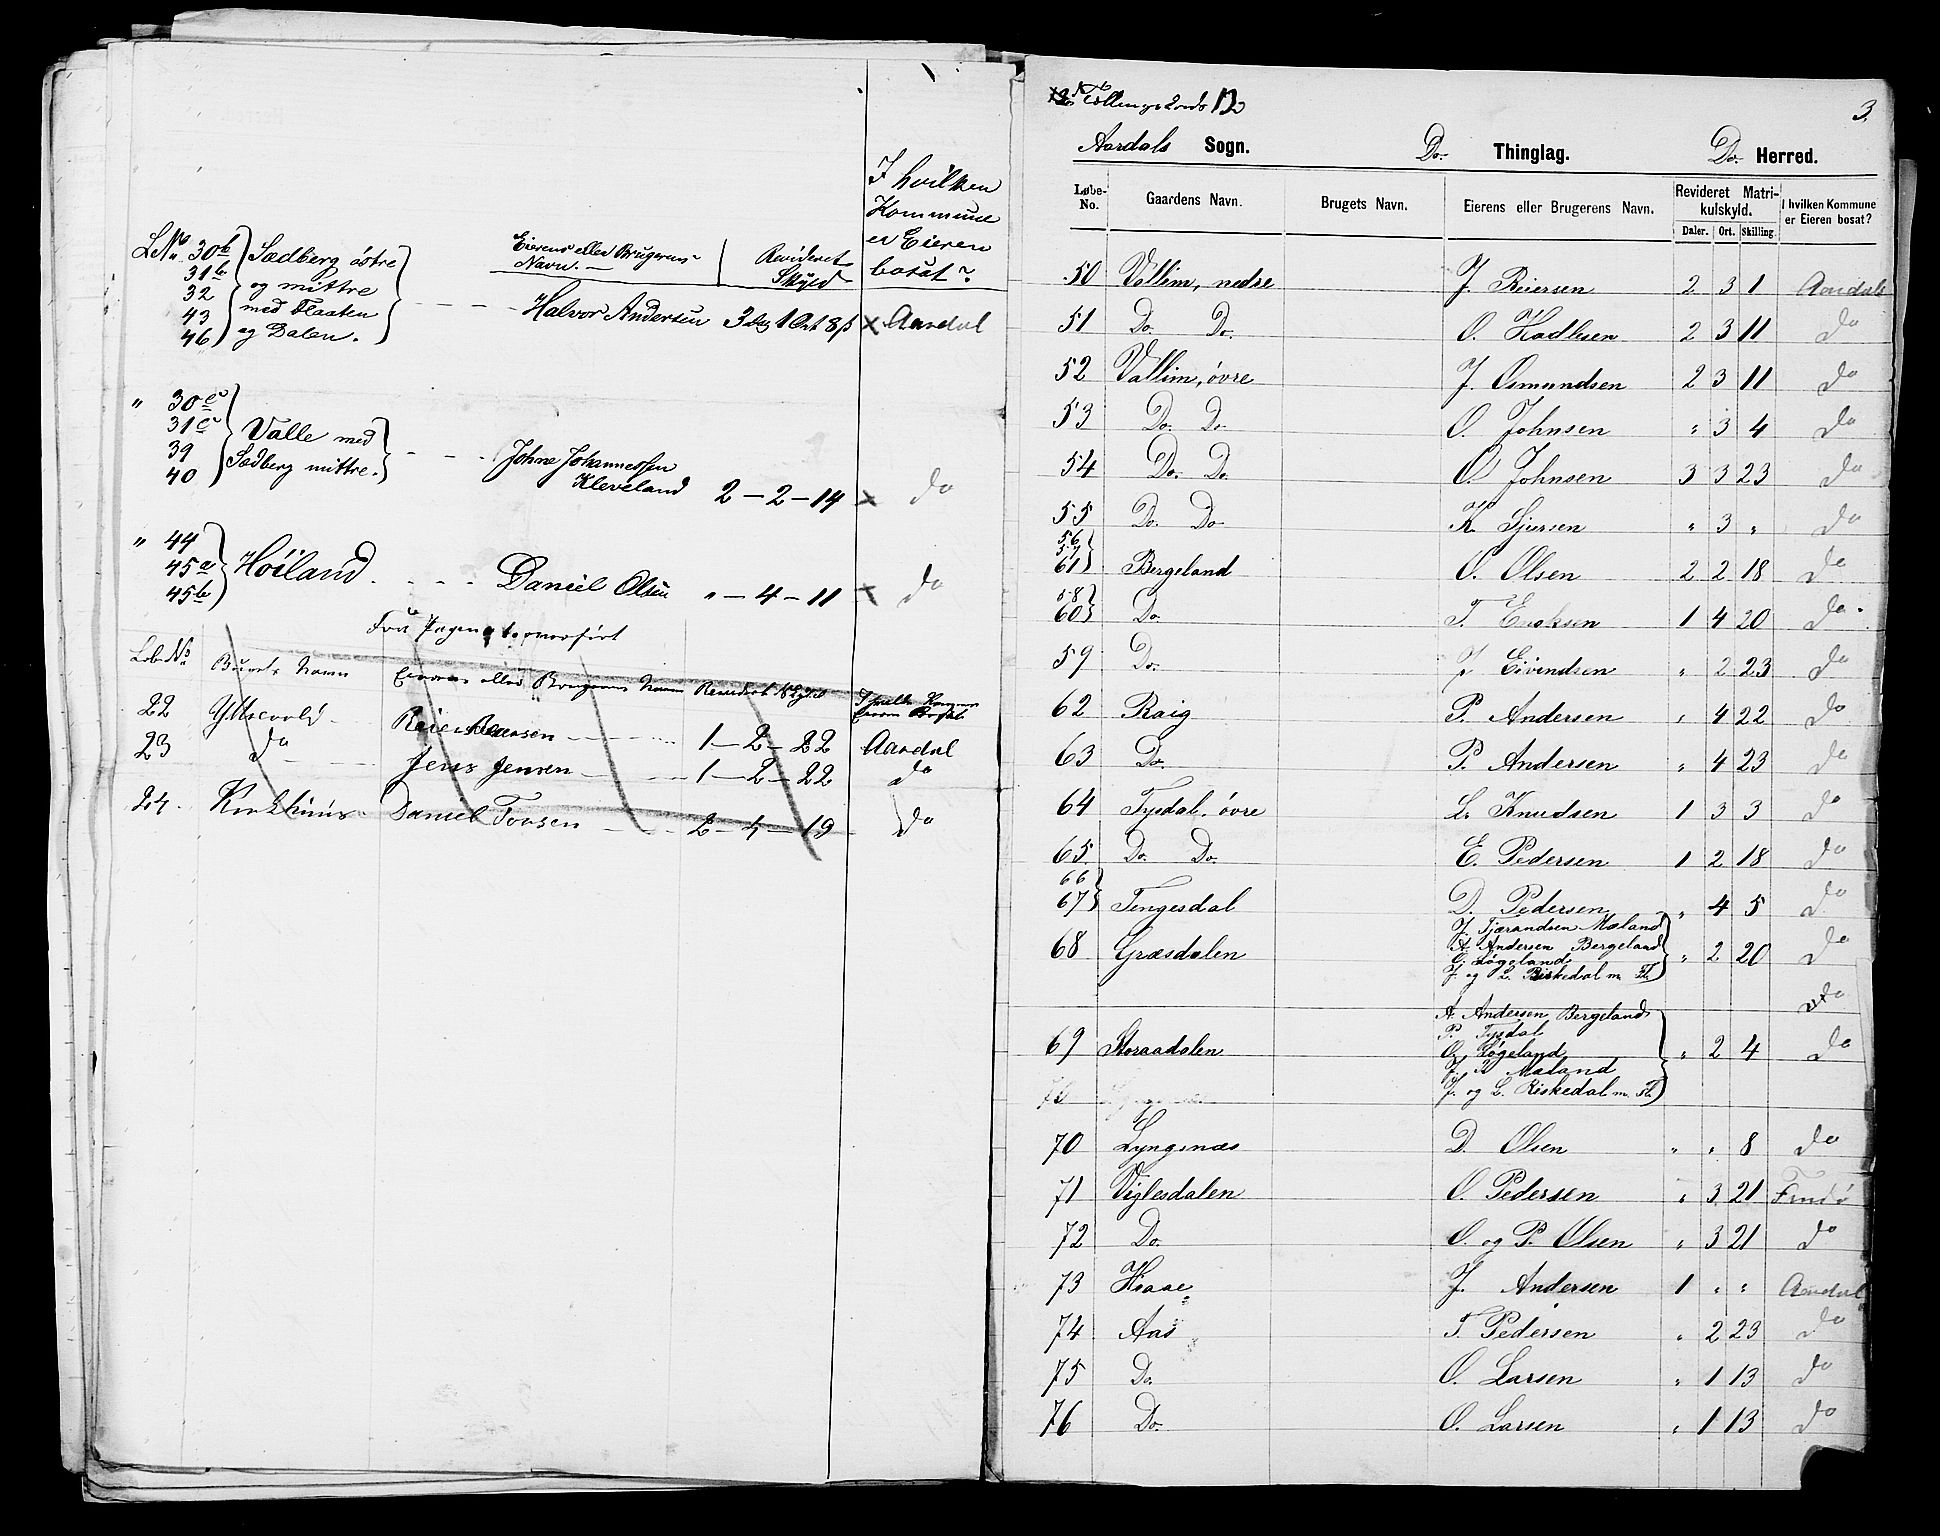 I hvilken
Kommune
er Eieren
bosat?
Eierens eller Brugerens Navn.
Revideret Skyld
LNo 30b Sædberg östre Halvor Andersen 3 Dlr 1 Ort 8 ß x Aardal
31b og mittre
32 med Flaaten
43 og Dalen.
46
" 30c
31c Valle med Johne Johannessen
39 Sædberg mittre. Kleveland 2 - 2 - 14 x do
40
" 44
45a Höiland Daniel Olsen " - 4 - 11 x do
45b
Fra Pagina 1 overfört
LøbeNo Brugets Navn Eierens eller Brugerens Navn Revideret Skyld
22 Reiersen 1 - 2 - 22 Aardal
23 do Jens Jensen 1 - 2 - 22 do
24 Kirkhuus Daniel Torsen 2 - 4 - 19 do
3.
Aardals Sogn. Do. Thinglag. Do. Herred.
Løbe-No. Gaardens Navn. Brugets Navn. Eierens eller Brugerens Navn. Revideret Matrikulskyld. I hvilken Kommune er Eieren bosat?
Daler. Ort. Skilling.
50 Vollim, nedre J. Reiersen 2 3 1 Aardals
51 Do. Do. O. Hadlesen 2 3 11 do
52 Vallim, övre J. Osmundsen 2 3 11 do
53 Do. Do. O. Johnsen " 3 4 do
54 Do. Do. O. Johnsen 3 3 23 do
55 Do. Do. K. Sjursen " 3 " do
56
57
61 Bergeland O. Olsen 2 2 18 do
58
60 Do. T. Enoksen 1 4 20 do
59 Do. J. Eivindsen " 2 23 do
62 Raig P. Andersen " 4 22 do
63 Do. P. Andersen " 4 23 do
64 Tysdal, övre L. Knudsen 1 3 3 do
65 Do. Do. E. Pedersen 1 2 18 do
66
67 Tengesdal D. Pedersen " 4 5 do
J. Tjerandsen Mæland
68 Græsdalen A. Andersen Bergeland " 2 20 do
O. Løgeland
J. og L. Riskedal m. Fl.
do
A. Andersen Bergeland
P. Tysdal
69 Storaadalen O. Løgeland " 2 4 do
Mæland
J. og L. Riskedal m. Fl.
70 Lyngsnæs D. Olsen " " 8 do
71 Viglesdalen O. Pedersen " 3 21 Findö
72 Do. O. og P. Olsen " 3 21 do
73 Hiaae J. Andersen 1 " " Aardal
74 Aas T. Pedersen " 2 23 do
75 Do. O. Larsen " 1 13 do
76 Do. O. Larsen " 1 13 do